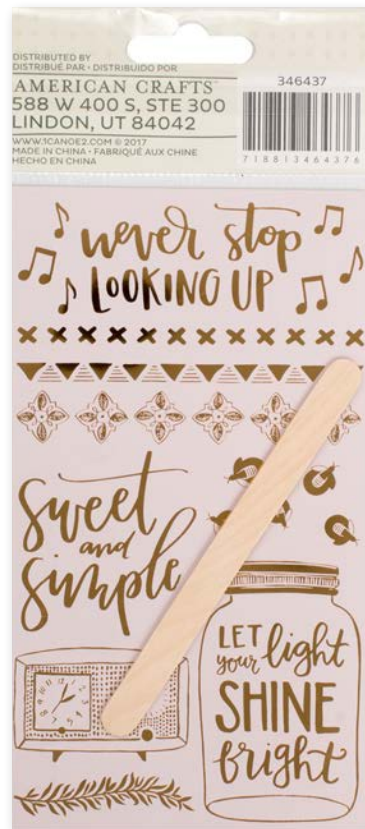 DISTRIBUTED BY
DISTRIBUÉ PAR • DISTRIBUIDO POR
AMERICAN CRAFTS™
588 W 400 S, STE 300
LINDON, UT 84042
WWW.1CANOE2.COM © 2017
MADE IN CHINA • FABRIQUÉ AUX CHINE
HECHO EN CHINA
346437
7 18813 46437 6
never stop
LOOKING UP
sweet
and
simple
LET
your light
SHINE
bright